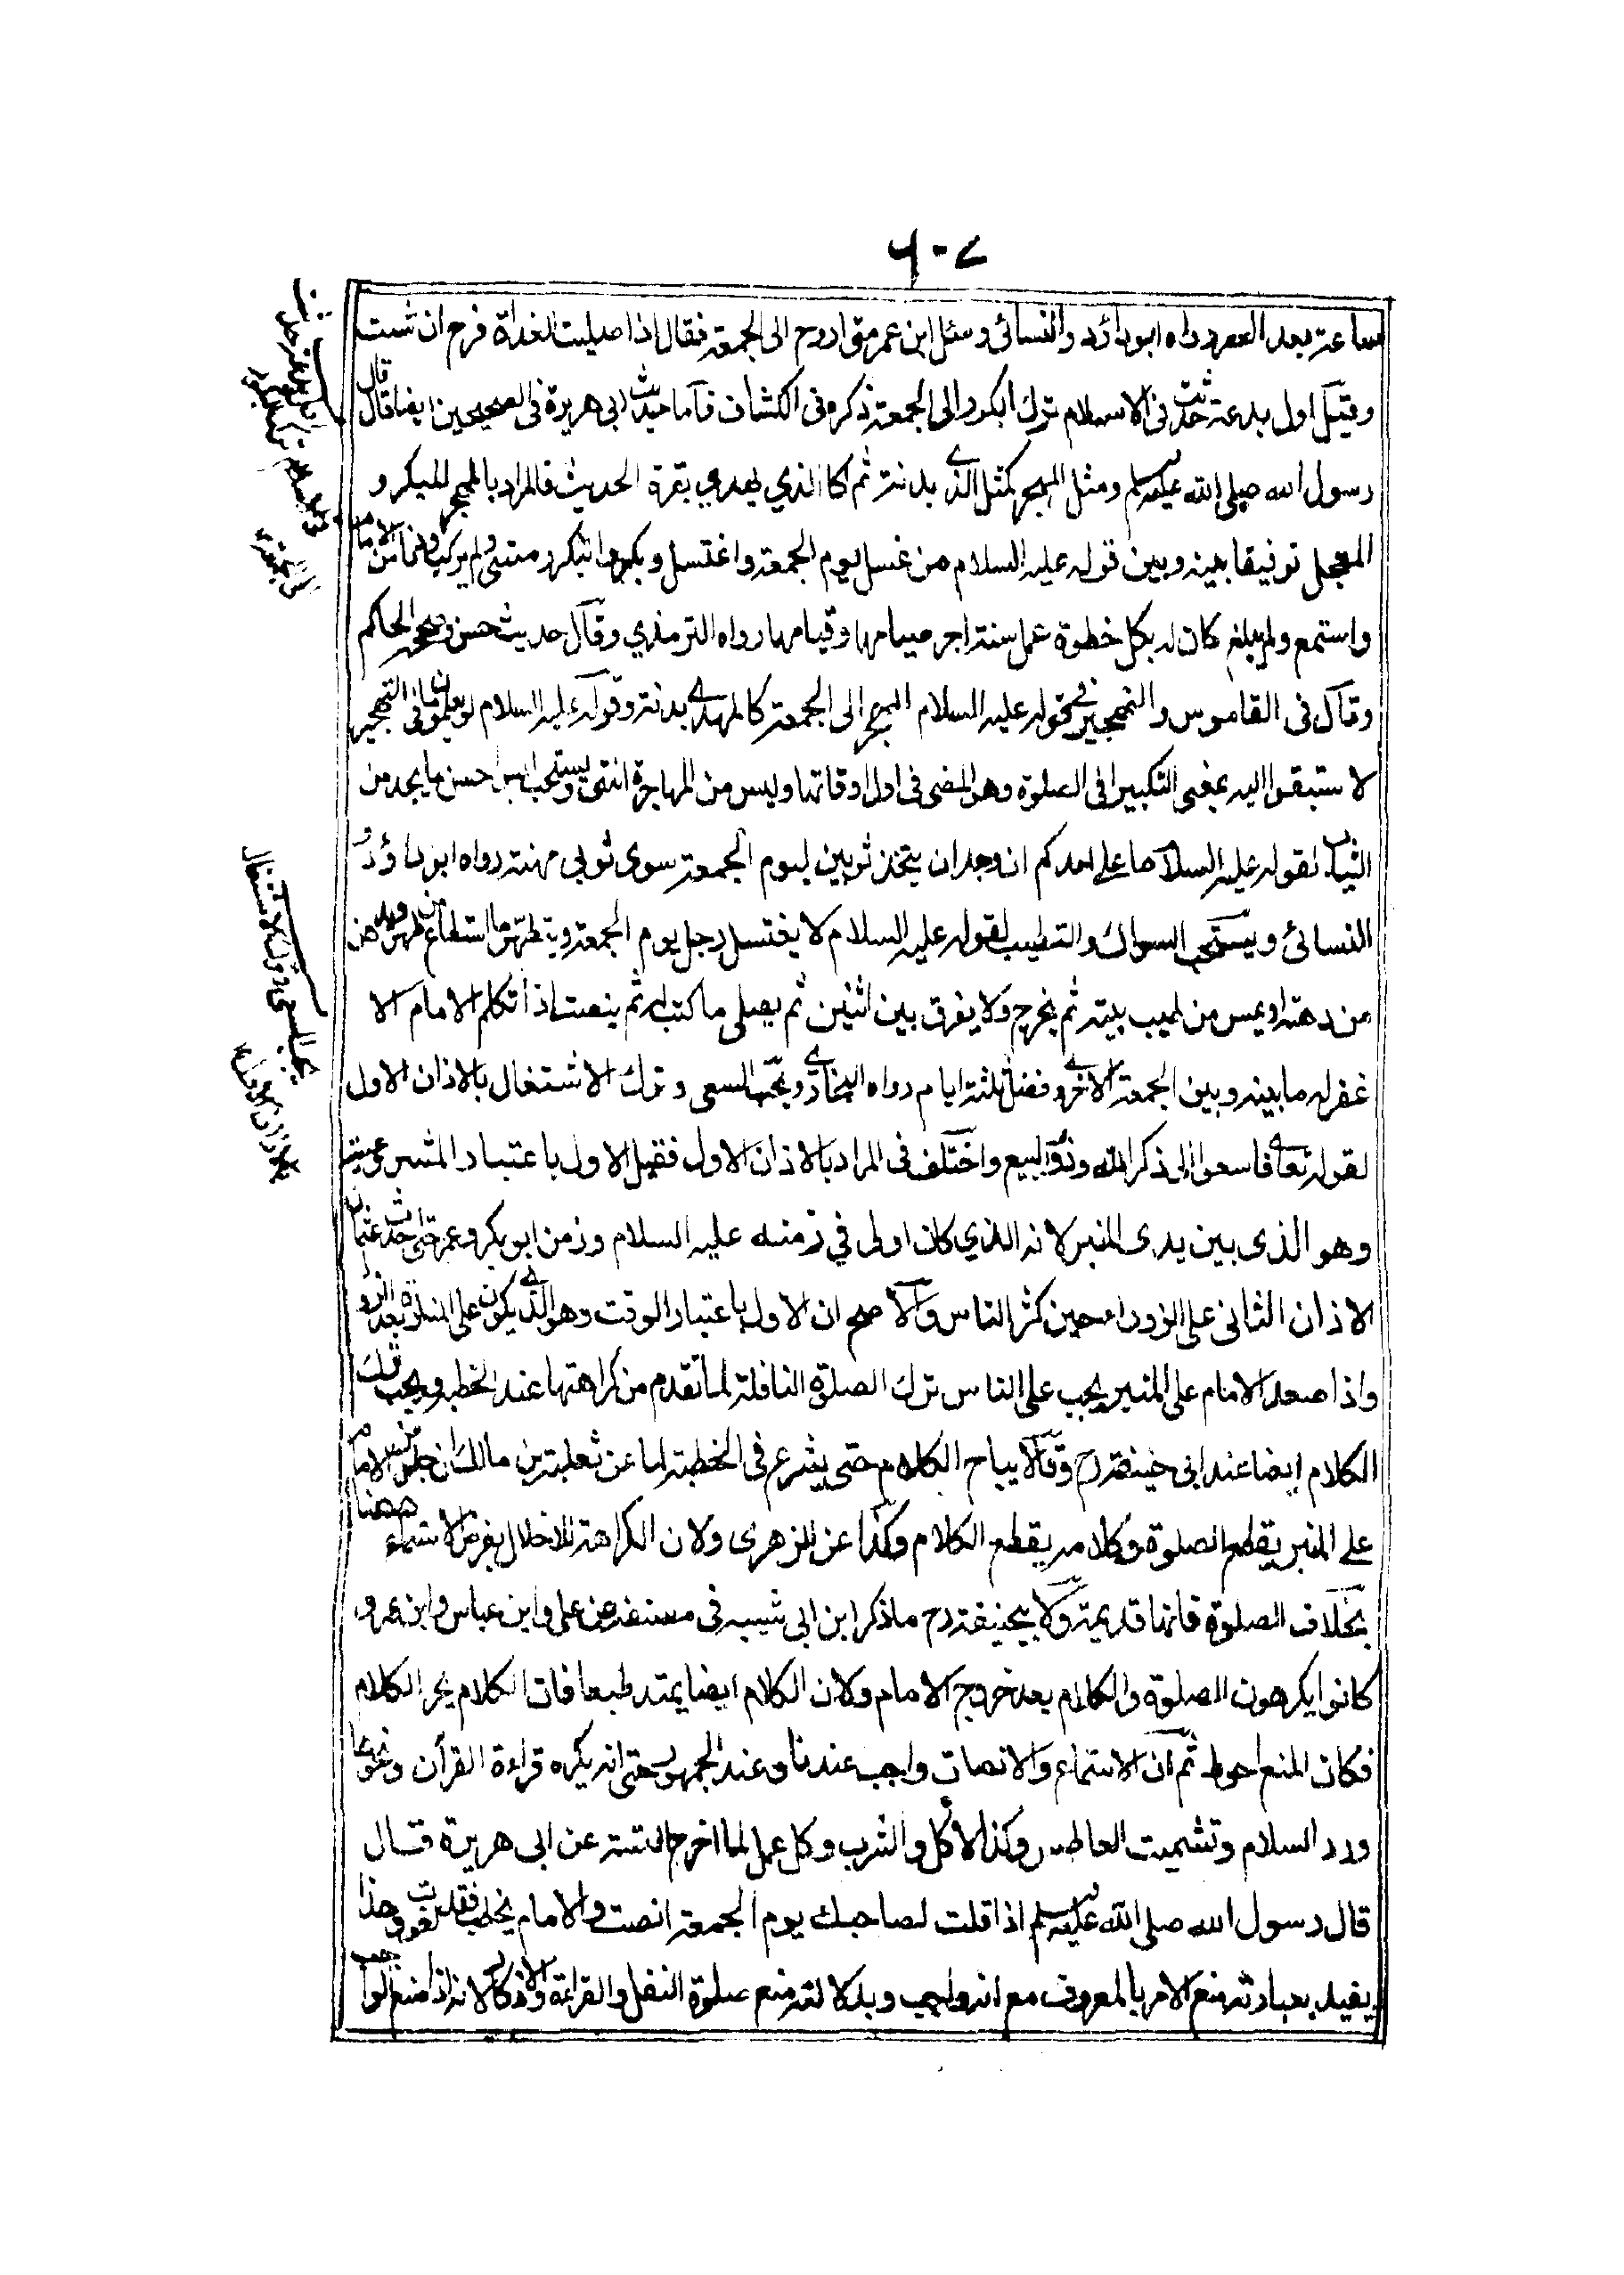 ٦٠٧
ساعة بعد العصر رواه ابو داؤد والنسائى وسئل ابن عمر متى اروح الى الجمعة فقال اذا صليت الغداة فرح ان شئت
وقيل اول بدعة حدثت فى الاسلام ترك البكور الى الجمعة ذكره فى الكشاف فاما حديث ابى هريرة فى الصحيحين ايضا قال قال
رسول الله صلى الله عليه وسلم ومثل المهجر كمثل الذى يهدى بدنة ثم كالذي يهدي بقرة الحديث فالمراد بالمهجر المبكر و
المعجل توفيقا بينه وبين قوله عليه السلام من غسل يوم الجمعة واغتسل وبكر وابتكر ومشى ولم يركب ودنا من الامام
واستمع ولم يلغ كان له بكل خطوة عمل سنة اجر صيامها وقيامها رواه الترمذي وقال حديث حسن وصححه الحاكم
وقال فى القاموس والتهجير فى قوله عليه السلام المهجر الى الجمعة كالمهدى بدنة وقوله عليه السلام لو يعلمون ما فى التهجير
لاستبقوا اليه بمعنى التبكير الى الصلوة وهو المضى فى اول اوقاتها وليس من المهاجرة انتهى ويستحب لبس احسن ما يجد من
الثياب لقوله عليه السلام ما على احدكم ان وجد ان يتخذ ثوبين ليوم الجمعة سوى ثوبي مهنته رواه ابو داؤد و
النسائى ويستحب السواك والتطيب لقوله عليه السلام لا يغتسل رجل يوم الجمعة ويتطهر ما استطاع من طهر ويدهن
من دهنه او يمس من طيب بيته ثم يخرج ولا يفرق بين اثنين ثم يصلى ما كتب له ثم ينصت اذا تكلم الامام الا
غفر له ما بينه وبين الجمعة الاخرى وفضل ثلثة ايام رواه البخارى ويجب السعى وترك الاشتغال بالاذان الاول
لقوله تعالى فاسعوا الى ذكر الله وذروا البيع واختلف فى المراد بالاذان الاول فقيل الاول باعتبار المشروعية
وهو الذى بين يدى المنبر لانه الذي كان اولا في زمنه عليه السلام وزمن ابو بكر وعمر حتى احدث عثمان
الاذان الثانى على الزوراء حين كثر الناس والاصح ان الاول باعتبار الوقت وهو الذى يكون على المنارة بعد الزوال
واذا صعد الامام على المنبر يجب على الناس ترك الصلوة النافلة لما تقدم من كراهتها عند الخطبة ويجب ترك
الكلام ايضا عند ابى حنيفة رح وقالا يباح الكلام حتى يشرع فى الخطبة لما عن ثعلبة بن مالك ان جلوس الامام
على المنبر يقطع الصلوة وكلامه يقطع الكلام وكذا عن الزهرى ولان الكراهة للاخلال بفرض الاستماع ههنا
بخلاف الصلوة فانها قد يمتد ولابي حنيفة رح ما ذكر ابن ابى شيبه فى مصنفه عن على وابن عباس وابن عمر و
كانوا يكرهون الصلوة والكلام بعد خروج الامام ولان الكلام ايضا يمتد طبعا فان الكلام يجر الكلام
فكان المنع احوط ثم ان الاستماع والانصات واجب عندنا وعند الجمهور حتى انه يكره قراءة القرآن ونحوها
ورد السلام وتشميت العاطس وكذا الاكل والشرب وكل عمل لما اخرج الستة عن ابى هريرة قال
قال رسول الله صلى الله عليه وسلم اذا قلت لصاحبك يوم الجمعة انصت والامام يخطب فقد لغوت وهذا
يفيد بعبارته منع الامر بالمعروف مع انه واجب وبدلالته منع صلوة النفل والقراءة والاذكار لانه اذا منع الواجب